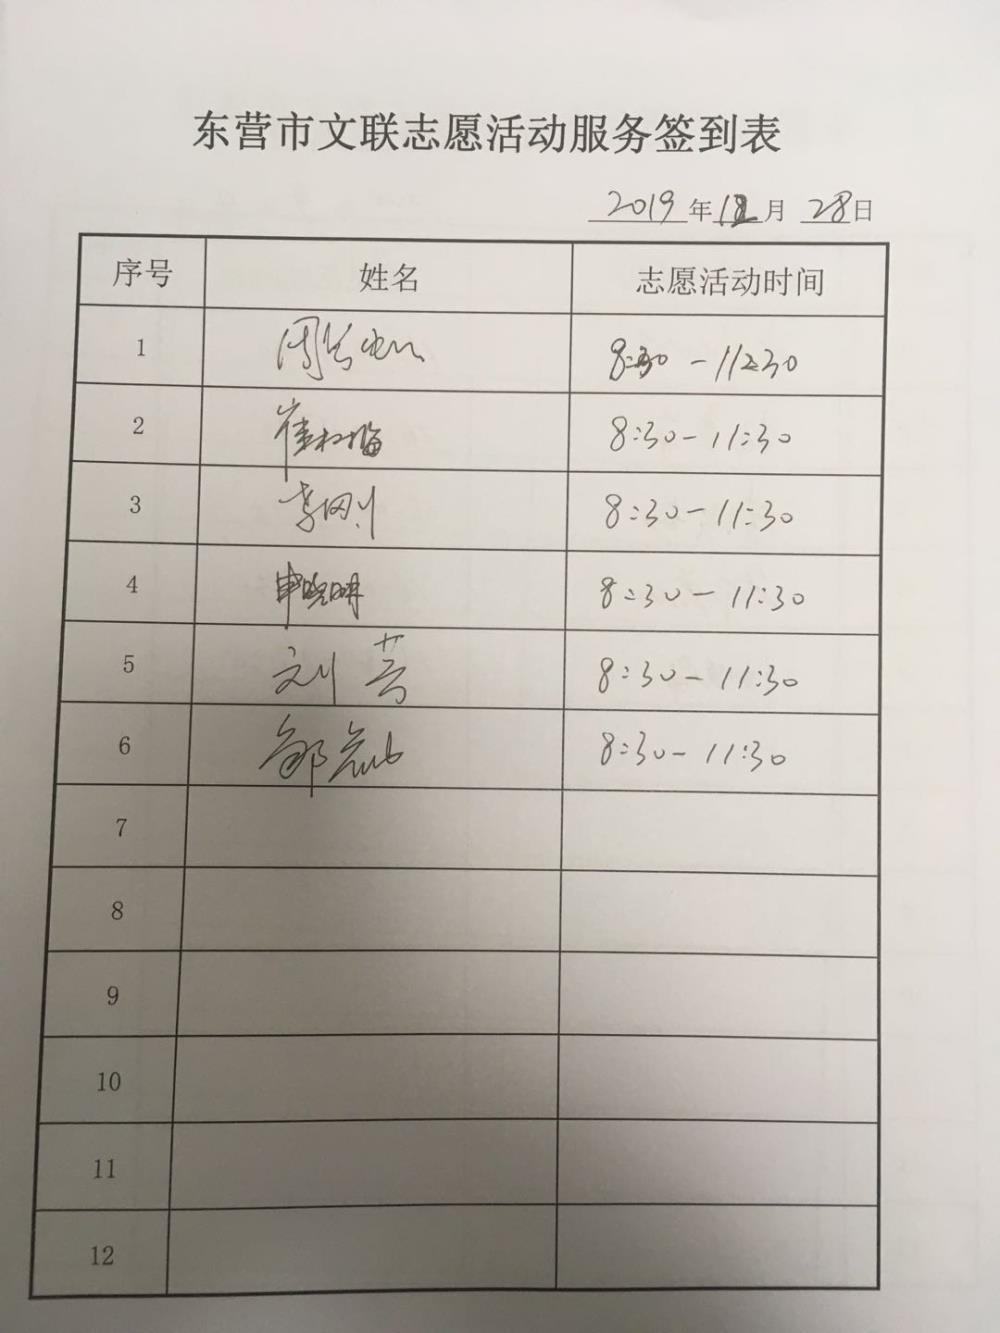 东营市文联志愿活动服务签到表
2019年12月28日
序号 姓名 志愿活动时间
1 周 8:30-11:30
2 崔 8:30-11:30
3 李刚 8:30-11:30
4 申晓明 8:30-11:30
5 刘芸 8:30-11:30
6 8:30-11:30
7
8
9
10
11
12